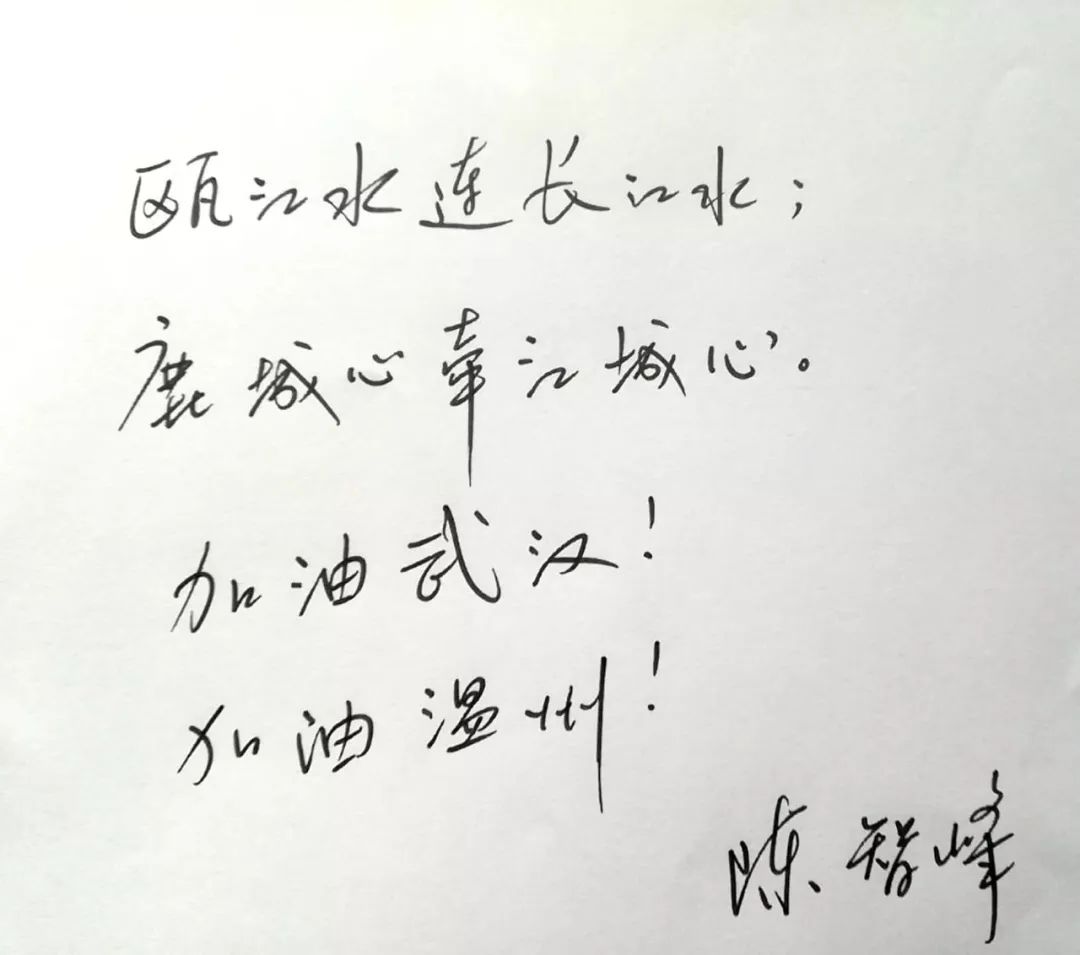 瓯江水连长江水；
鹿城心牵江城心。
加油武汉！
加油温州！
陈智峰